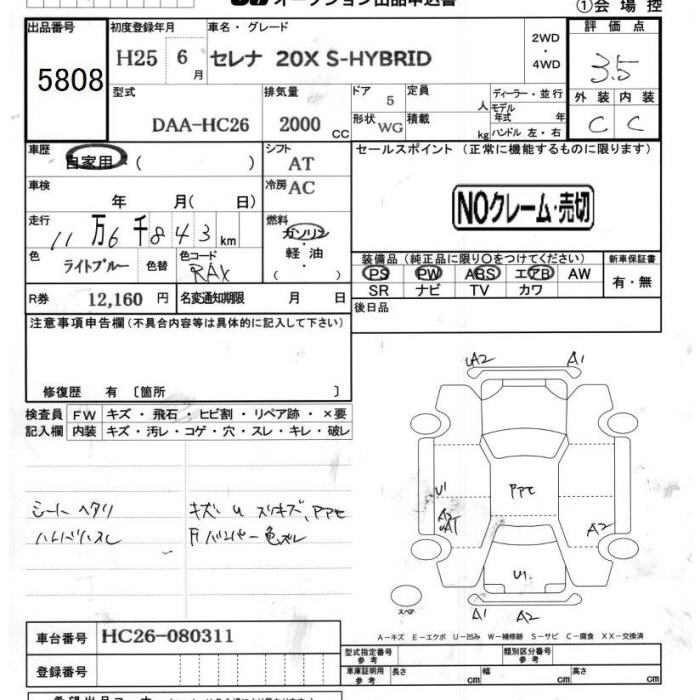 オークション出品申込書
①会場控
出品番号
5808
初度登録年月
H25 6月
車名・グレード
セレナ 20X S-HYBRID
2WD
・
4WD
評価点
3.5
型式
DAA-HC26
排気量
2000 CC
ドア 5
形状 WG
定員 人
積載 kg
ディーラー・並行
モデル年式 年
ハンドル 左・右
外装 内装
C C
車歴
自家用・( )
シフト
AT
セールスポイント (正常に機能するものに限ります)
車検
年 月( 日)
冷房 AC
NOクレーム・売切
走行
11万6千843km
燃料
ガソリン
・
軽油
( )
色
ライトブルー
色替
色コード
RAX
装備品 (純正品に限り〇をつけてください)
PS PW ABS エアB AW
SR ナビ TV カワ
新車保証書
有・無
R券 12,160 円
名変通知期限 月 日
後日品
注意事項申告欄 (不具合内容等は具体的に記入して下さい)
修復歴 有 〔箇所 〕
検査員 FW キズ・飛石・ヒビ割・リペア跡・×要
記入欄 内装 キズ・汚レ・コゲ・穴・スレ・キレ・破レ
シートヘタリ
キズ U スリキズ、PPt
ハンドルスレ
Fバンパー色ズレ
UA2 A1
U1
PPt
A2
UA1
A2
U1
スペア
A1 A2
A−キズ E−エクボ U−凹み W−補修跡 S−サビ C−腐食 XX−交換済
車台番号 HC26-080311
登録番号
型式指定番号
参考
類別区分番号
参考
車庫証明用
参考
長さ cm 幅 cm 高さ cm